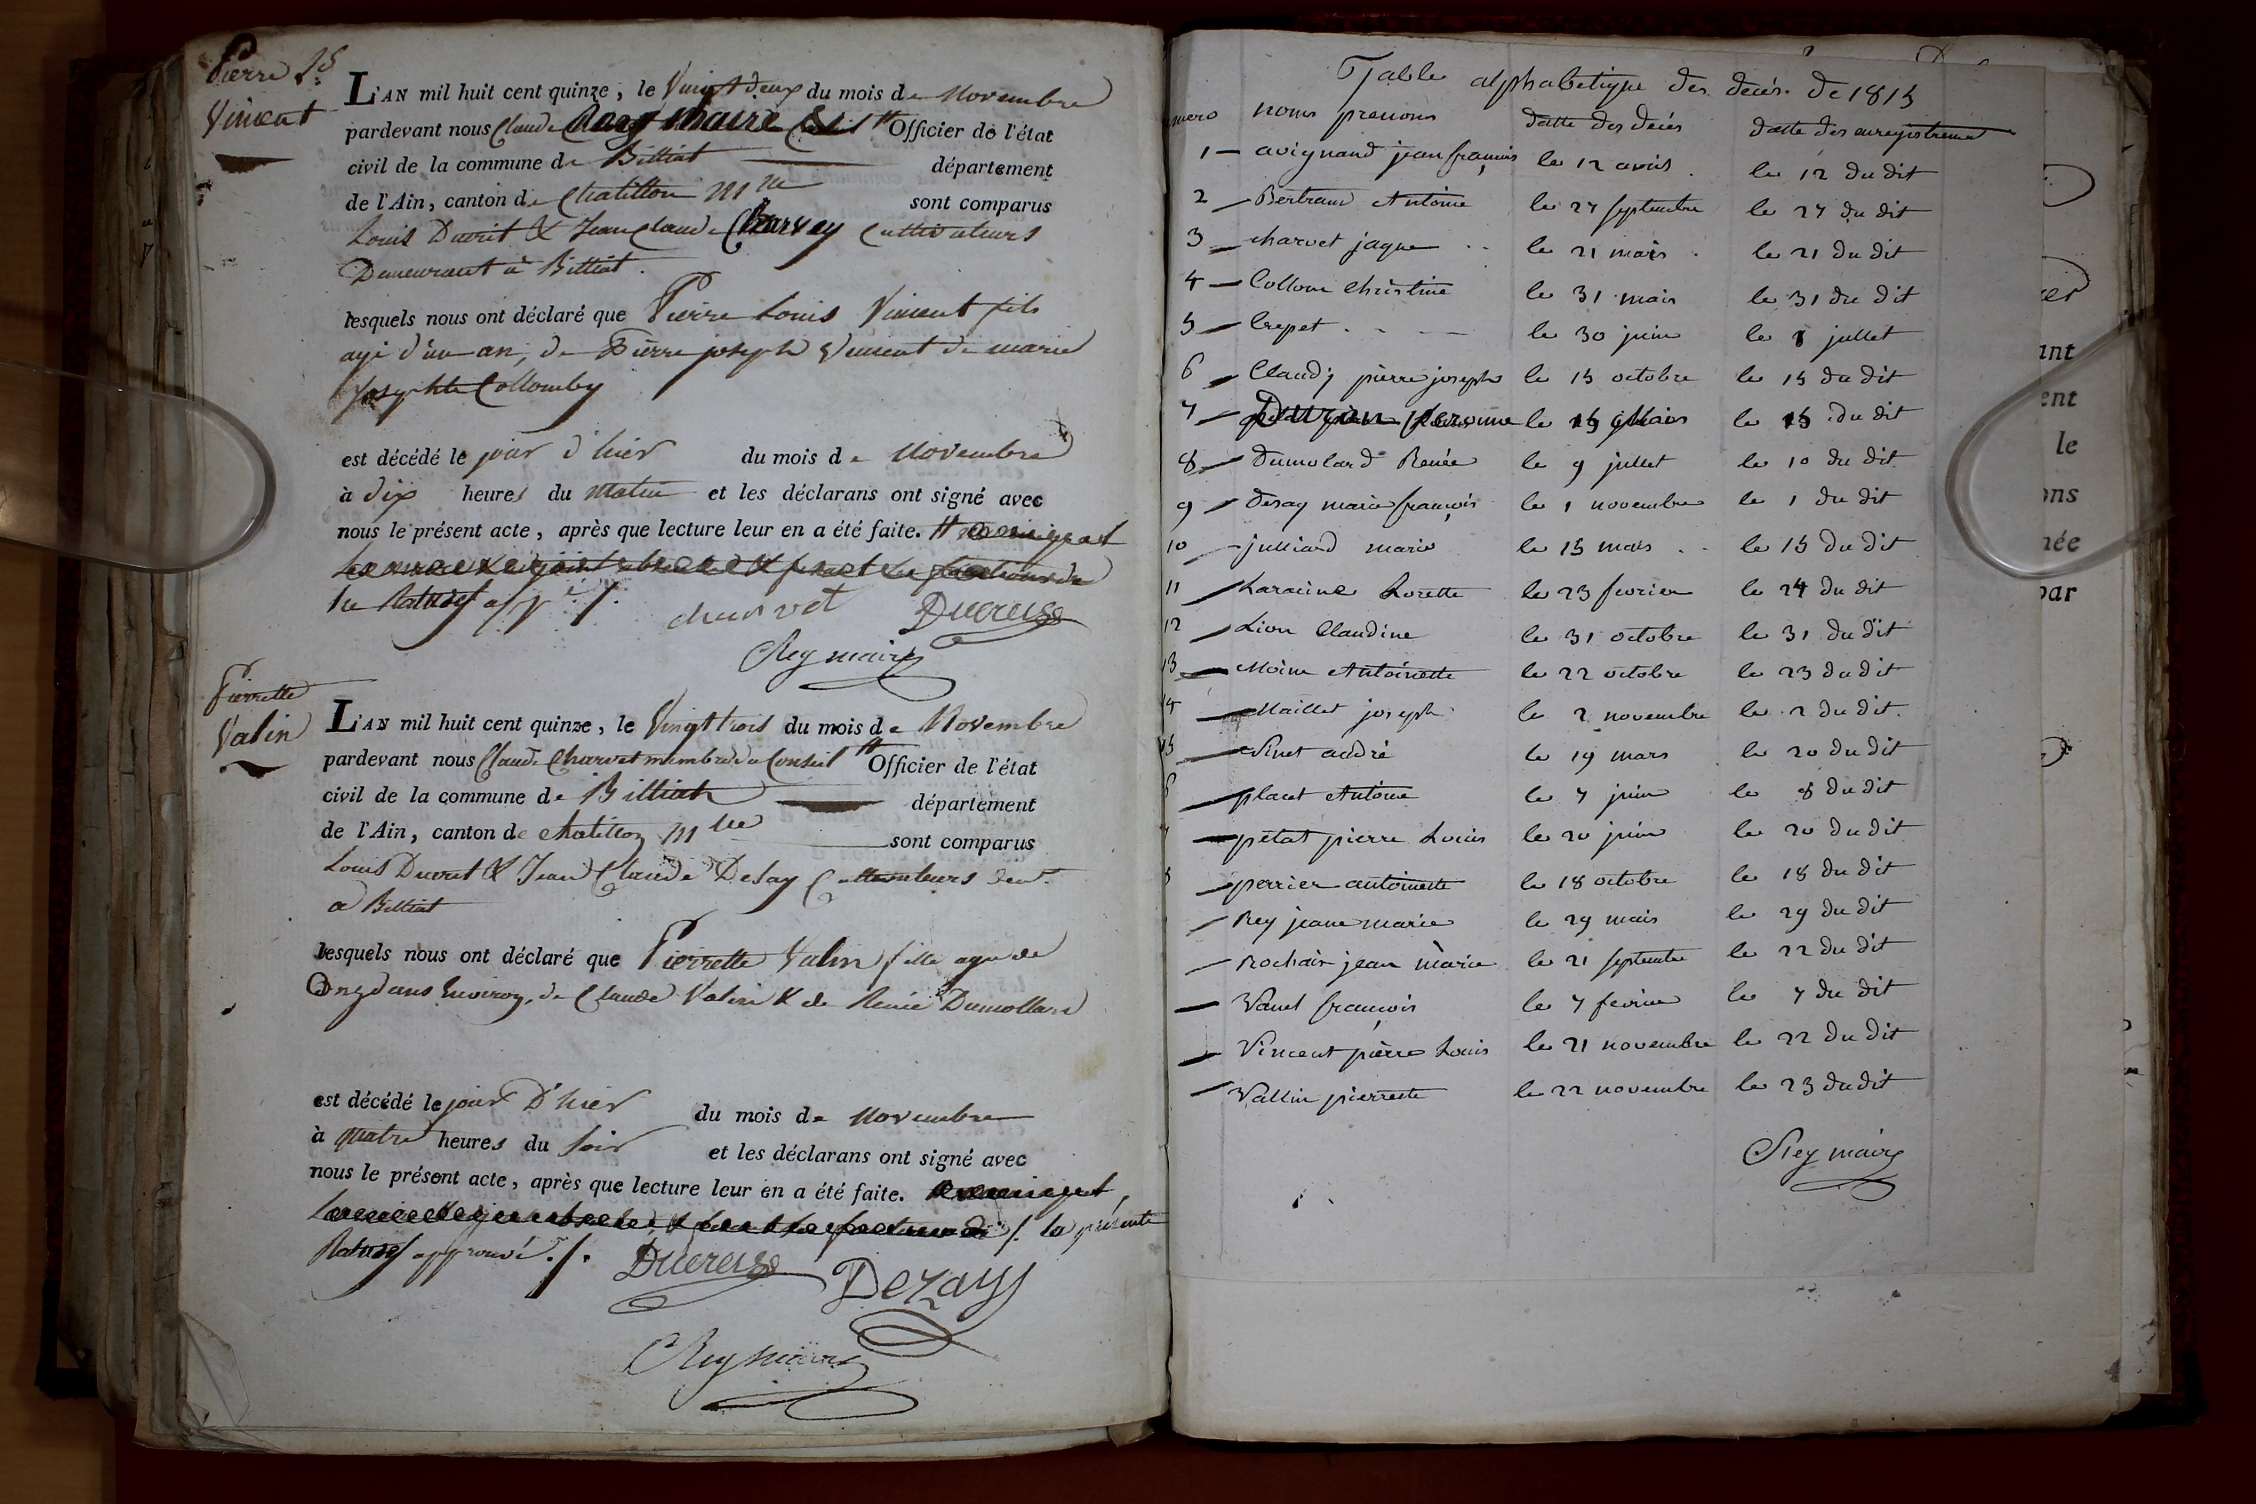 Pierre Ls
Vincent
L'AN mil huit cent quinze, le Vingt deux du mois de Novembre
pardevant nous Claude Rey Maire Officier de l'état
civil de la commune de Billiat département
de l'Ain, canton de Chatillon Mlle sont comparus
Louis Ducret & Jean Claude Charvey Cultivateurs
Demeurant à Billiat.
lesquels nous ont déclaré que Pierre Louis Vincent fils
agé d'un an, de Pierre joseph Vincent de marie
Josephte Collomby
est décédé le jour d'hier du mois de Novembre
à dix heures du Matin et les déclarans ont signé avec
nous le présent acte, après que lecture leur en a été faite.
charvet Ducret
Rey maire
Pierrette
Valin
L'AN mil huit cent quinze, le Vingt trois du mois de Novembre
pardevant nous Claude Charvet membre du Conseil Officier de l'état
civil de la commune de Billiat département
de l'Ain, canton de chatillon Mlle sont comparus
Louis Ducret & Jean Claude Desay Cultivateurs demt
a Billiat
lesquels nous ont déclaré que Pierrette Valin fille agee de
Onze ans Environ, de Claude Valin & de Renée Dumollard
est décédé le jour D'hier du mois de Novembre
à quatre heures du soir et les déclarans ont signé avec
nous le présent acte, après que lecture leur en a été faite.
la présente
approuvé ./.
Ducret Dezay
Rey maire
Table alphabetique des decés de 1815
mero noms prenoms datte des decés datte des enregistrement
1 - avignand jean françois le 12 avril le 12 du dit
2 - Bertrand Antoine le 27 septembre le 27 du dit
3 - charvet jaque le 21 mars le 21 du dit
4 - Collom Christine le 31 mais le 31 du dit
5 - Crepet le 30 juin le 1 jullet
6 - Claudy pierre joseph le 15 octobre le 15 du dit
7 - peronne le 15 Mais le 15 du dit
8 - Dumolard Renée le 9 jullet le 10 du dit
9 - Desay marie françois le 1 novembre le 1 du dit
10 - julliard marie le 15 mars le 15 du dit
11 - Laracine Lorette le 23 fevrier le 24 du dit
12 - Lion Claudine le 31 octobre le 31 du dit
13 - Moine Antoinette le 22 octobre le 23 du dit
14 - Maillet joseph le 2 novembre le 2 du dit
15 - Vinet andré le 19 mars le 20 du dit
6 - placet Antoine le 7 juin le 8 du dit
7 - petat pierre Louis le 20 juin le 20 du dit
8 - perrier antoinette le 18 octobre le 18 du dit
- Rey jeane marie le 29 mais le 29 du dit
- Rochaix jean marie le 21 septembre le 22 du dit
- Vanel françois le 7 fevrier le 7 du dit
- Vincent pierre Louis le 21 novembre le 22 du dit
- Vallin pierrette le 22 novembre le 23 du dit
Rey maire
ant
ent
le
ons
née
par